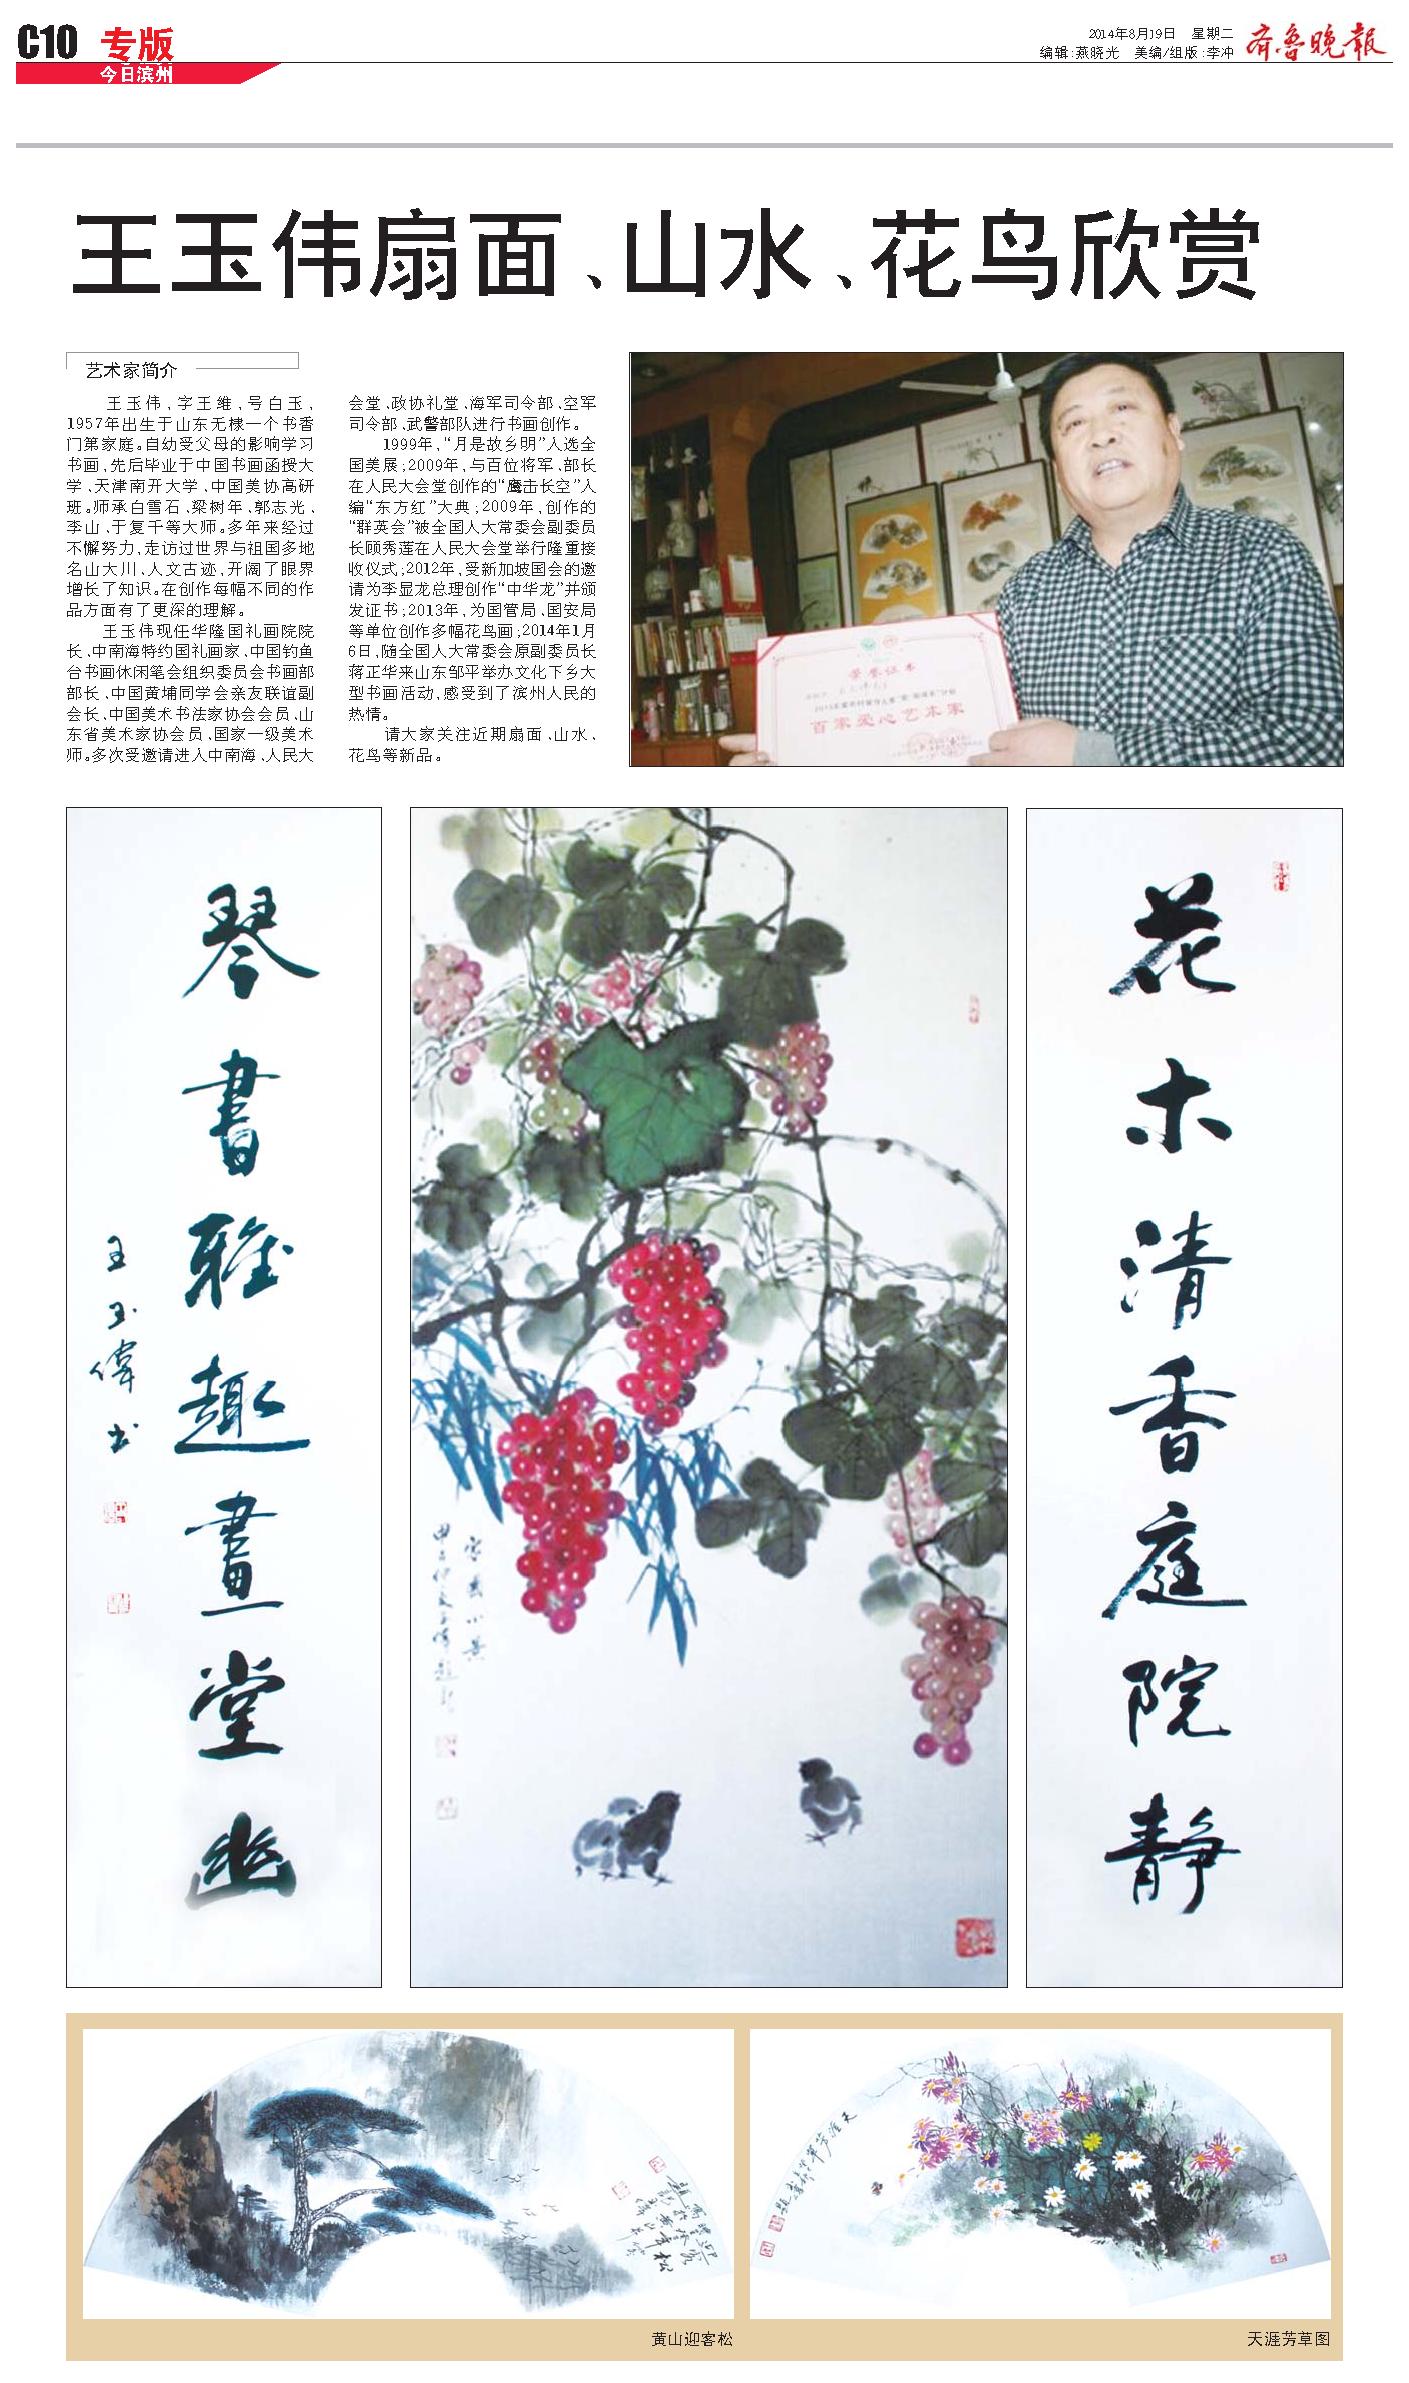 C10 专版
今日滨州
2014年8月19日 星期二
编辑:燕晓光 美编/组版:李冲
齐鲁晚报
王玉伟扇面、山水、花鸟欣赏
艺术家简介
王玉伟,字王维,号白玉,
1957年出生于山东无棣一个书香
门第家庭。自幼受父母的影响学习
书画,先后毕业于中国书画函授大
学、天津南开大学、中国美协高研
班。师承白雪石、梁树年、郭志光、
李山、于复千等大师。多年来经过
不懈努力,走访过世界与祖国多地
名山大川、人文古迹,开阔了眼界
增长了知识。在创作每幅不同的作
品方面有了更深的理解。
王玉伟现任华隆国礼画院院
长、中南海特约国礼画家、中国钓鱼
台书画休闲笔会组织委员会书画部
部长、中国黄埔同学会亲友联谊副
会长、中国美术书法家协会会员、山
东省美术家协会员、国家一级美术
师。多次受邀请进入中南海、人民大
会堂、政协礼堂、海军司令部、空军
司令部、武警部队进行书画创作。
1999年,“月是故乡明”入选全
国美展;2009年,与百位将军、部长
在人民大会堂创作的“鹰击长空”入
编“东方红”大典;2009年,创作的
“群英会”被全国人大常委会副委员
长顾秀莲在人民大会堂举行隆重接
收仪式;2012年,受新加坡国会的邀
请为李显龙总理创作“中华龙”并颁
发证书;2013年,为国管局、国安局
等单位创作多幅花鸟画;2014年1月
6日,随全国人大常委会原副委员长
蒋正华来山东邹平举办文化下乡大
型书画活动,感受到了滨州人民的
热情。
请大家关注近期扇面、山水、
花鸟等新品。
荣誉证书
百家爱心艺术家
花木清香庭院静
琴書雅趣畫堂幽
王玉偉书
天涯芳草
黄山迎客松
天涯芳草图